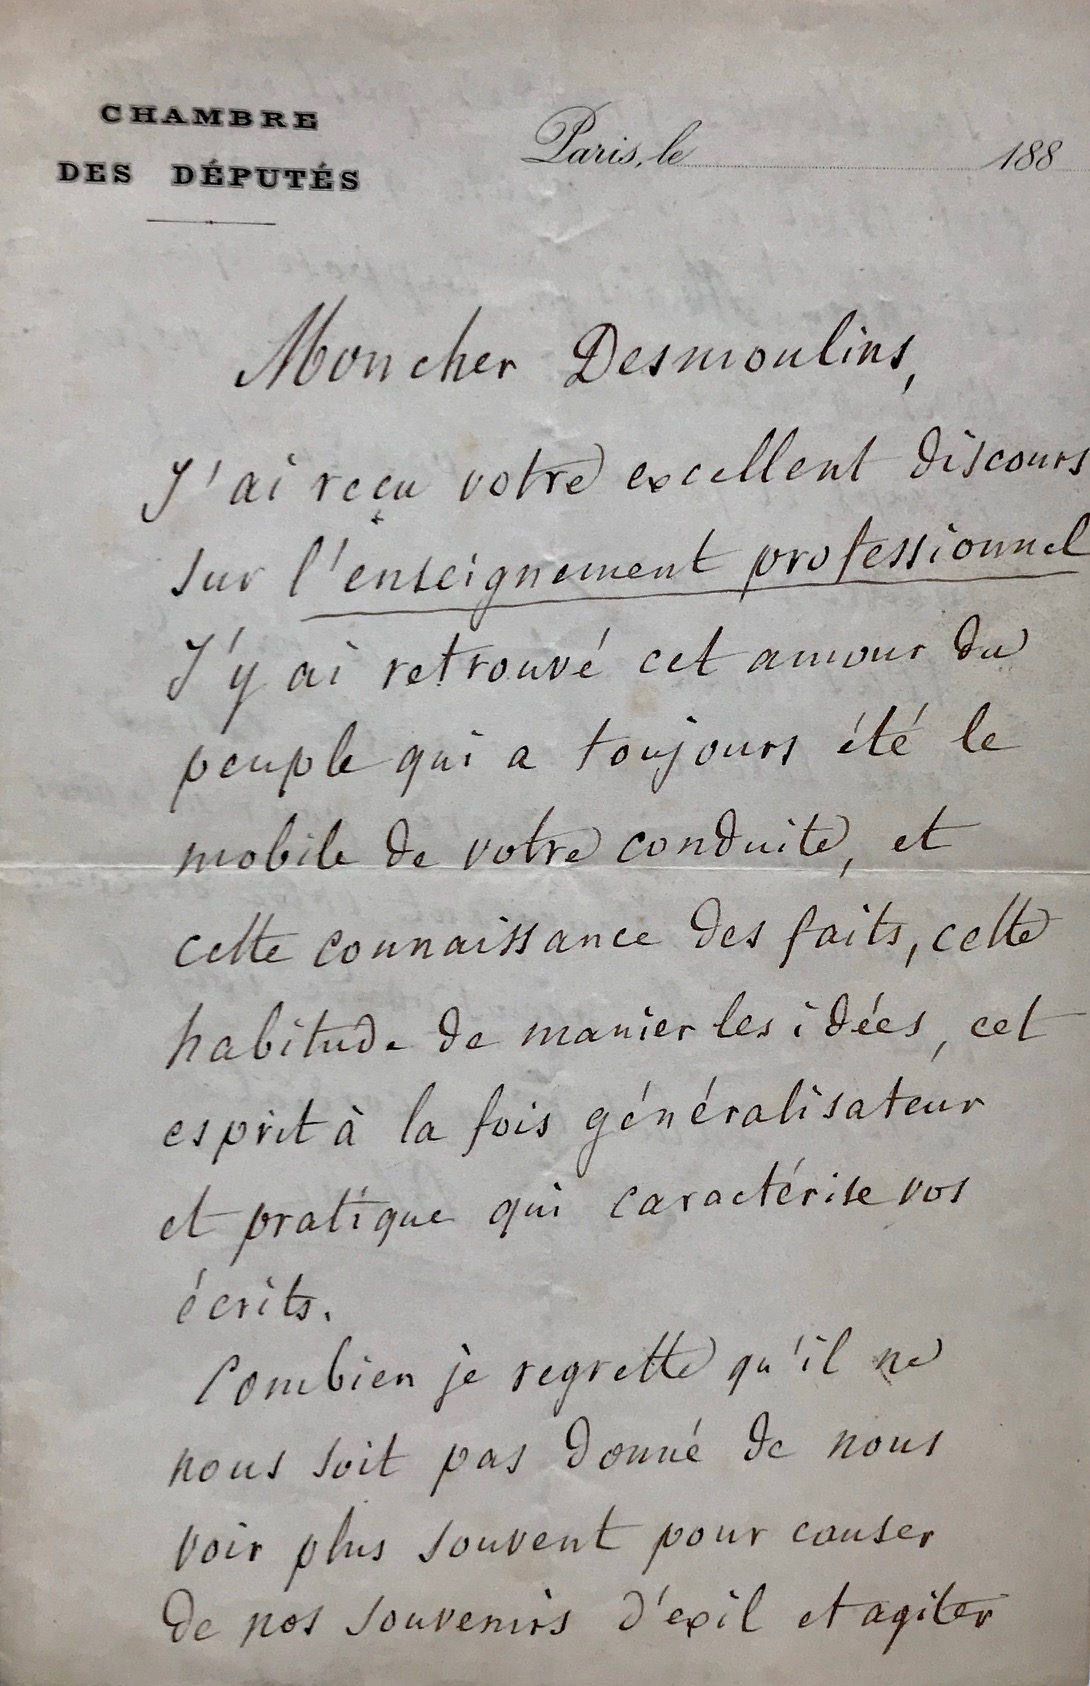 CHAMBRE
DES DÉPUTÉS
Paris, le 188
Mon cher Desmoulins,
J'ai reçu votre excellent discours
sur l'enseignement professionnel
J'y ai retrouvé cet amour du
peuple qui a toujours été le
mobile de votre conduite, et
cette connaissance des faits, cette
habitude de manier les idées, cet
esprit à la fois généralisateur
et pratique qui caractérise vos
écrits.
Combien je regrette qu'il ne
nous soit pas donné de nous
voir plus souvent pour causer
de nos souvenirs d'exil et agiter